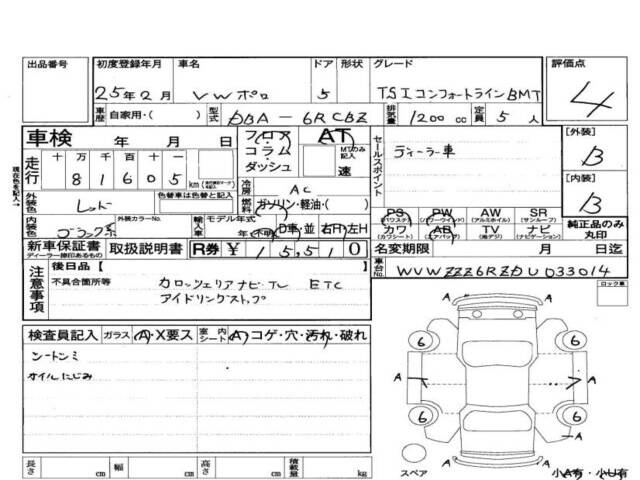 出品番号 初度登録年月 車名 ドア 形状 グレード 評価点
25年2月 VWポロ 5 TSIコンフォートラインBMT 4
車歴 自家用・( ) 型式 DBA-6RCBZ 排気量 1200cc 定員 5人
車検 年 月 日 フロア AT
コラム MTのみ記入
ダッシュ 速
走行 十 万 千 百 十 一
8 1 6 0 5 km
セールスポイント
ディーラー車
[外装] B
[内装] B
冷房 AC
外装色 レッド 色替車は色替と記入 燃料 ガソリン・軽油・( )
内装色 ブラック系 外装カラーNo. 輸入車 モデル年式 年(不明) D車・並 右H・左H
PS (パワステ) PW (パワーウインド) AW (アルミホイル) SR (サンルーフ)
カワ (カワシート) AB (エアバッグ) TV (地デジ) ナビ (ナビゲーション)
純正品のみ丸印
新車保証書 ディーラー捺印あるもの 取扱説明書 R券 ¥15,510 名変期限 月 日
後日品 [ ] 車台No. WVWZZZ6RZDU033014
注意事項 不具合箇所等 カロッツェリアナビTV ETC
アイドリングストップ
ロック車
検査員記入 ガラス A・X要ス 室内シート A・コゲ・穴・汚れ・破れ
シートシミ
オイルにじみ
A
6 6
A A
6 6
A
A
スペア
小A有・小U有
長さ cm 幅 cm 高さ cm 積載量 kg
現在色を記入→